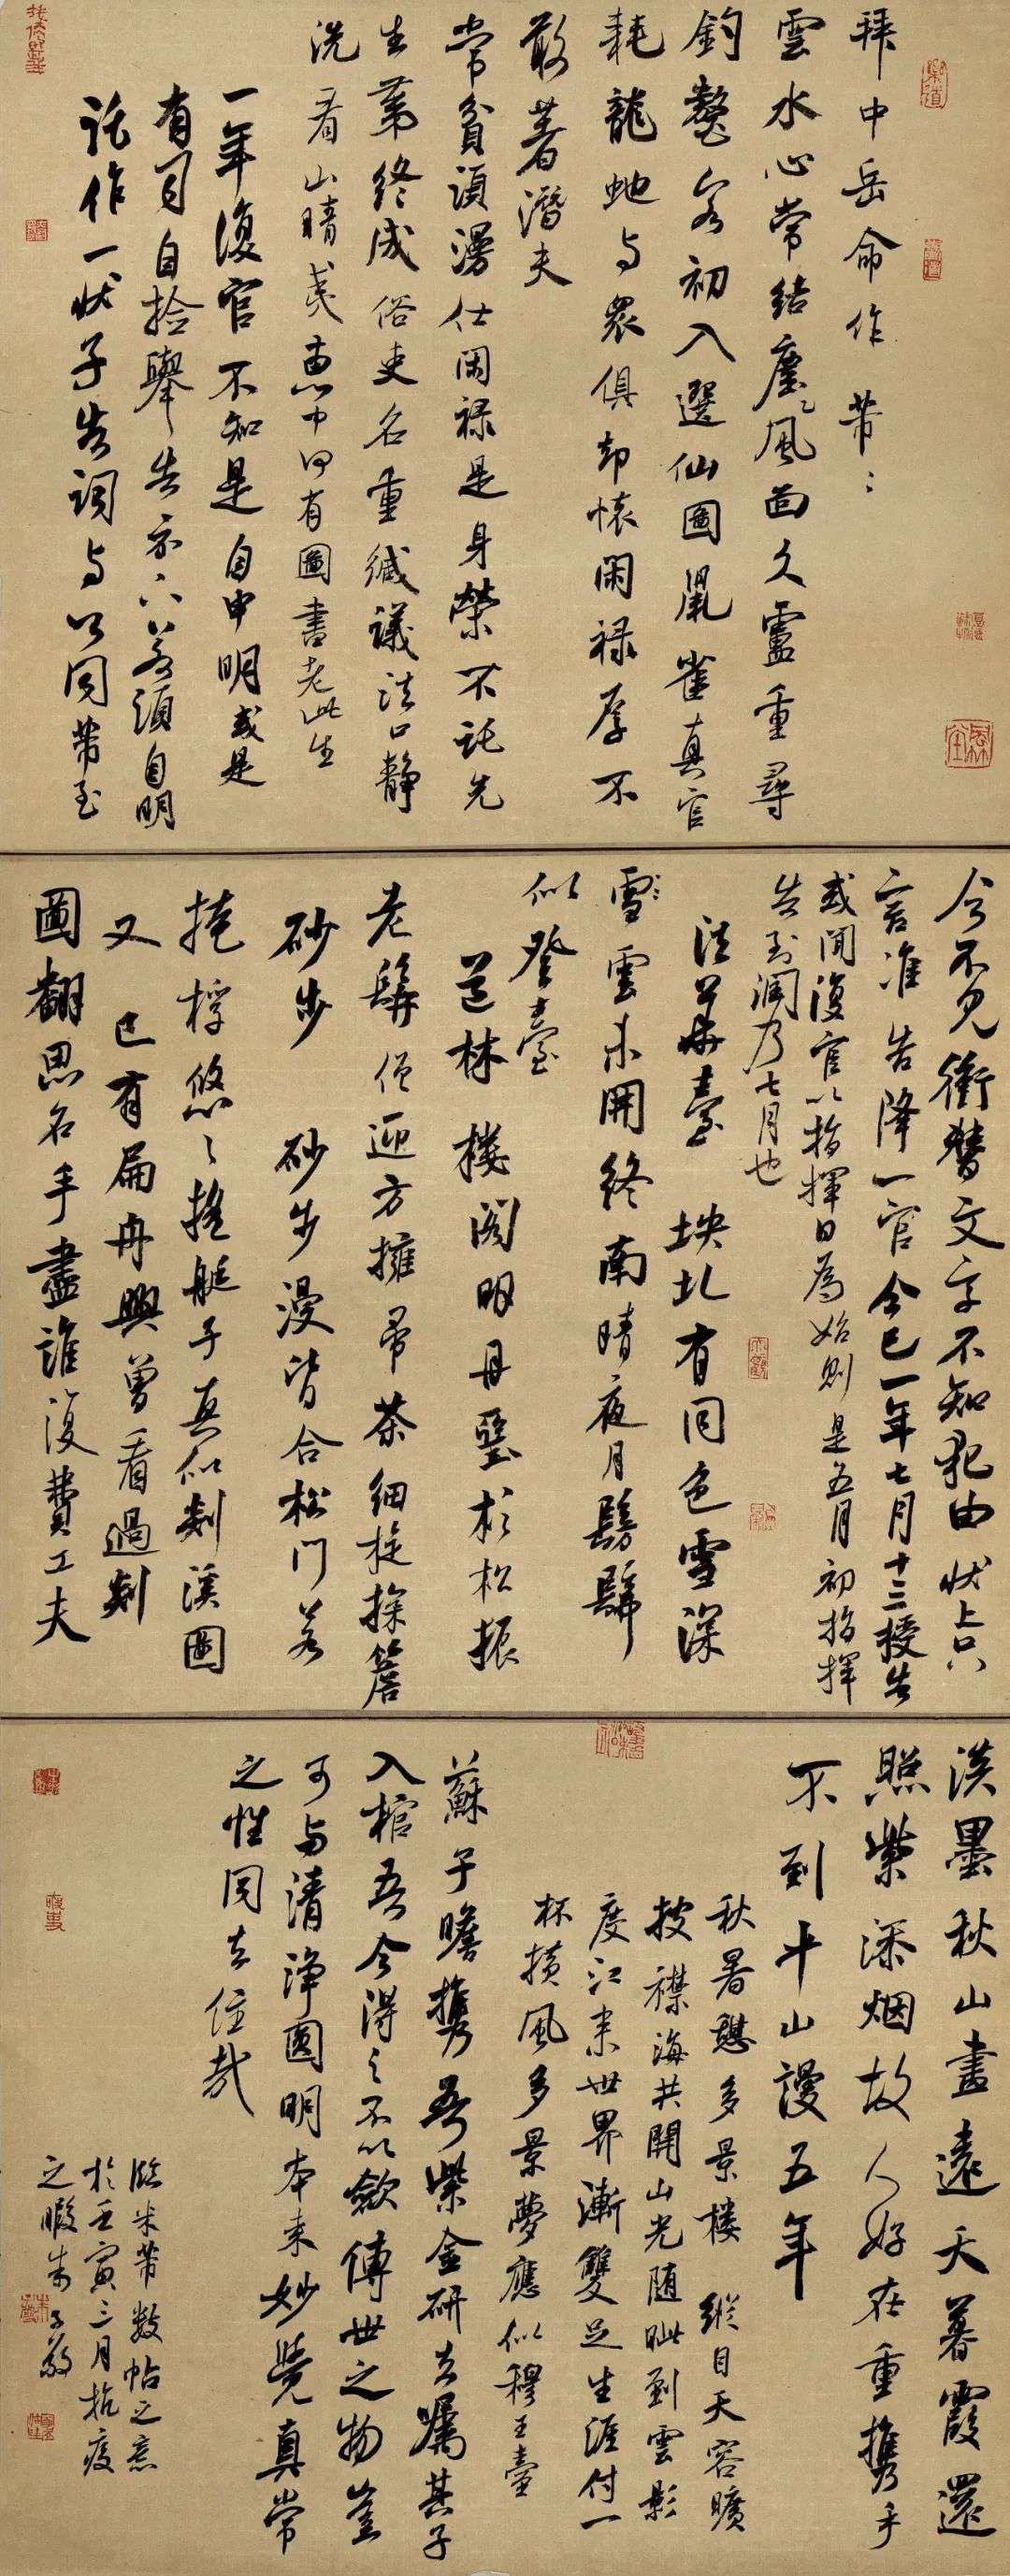 拜中岳命作 芾〻
雲水心常結塵風面久盧重尋
釣鼇客初入選仙圖鼠雀真官
耗龍蛇与眾俱却懷閑祿厚不
敢著潛夫
常貧須漫仕閑祿是身榮不託先
生第終成俗吏名重緘議法口靜
洗看山晴夷惠中何有圖書老此生
一年復官不知是自申明或是
有司自撿舉告示下若須自明
託作一狀子告詞与公同芾至
今不見衝替文字不知犯由狀上只
言准告降一官今已一年七月十三授告
或聞復官以指揮日為始則是五月初指揮
告到潤乃七月也
法華臺 坱圠有同色雪深
雪雲未開終南晴夜月髣髴
似登臺
道林 樓閣明丹堊杉松振
老髯僧迎方擁帚茶細旋探簷
砂步 砂步漫皆合松門若
掩桴悠〻搖艇子真似剡溪圖
又 已有扁舟興曾看過剡
圖翻思名手盡誰復費工夫
淡墨秋山畫遠天暮霞還
照紫添烟故人好在重攜手
不到平山謾五年
秋暑憩多景樓 縱目天容曠
披襟海共開山光隨眦到雲影
度江来世界漸雙足生涯付一
杯橫風多景夢應似穆王臺
蘇子瞻攜吾紫金研去嘱其子
入棺吾今得之不以斂傳世之物豈
可与清淨圓明本来妙覺真常
之性同去住哉
臨米芾數帖之意
於壬寅三月抗疫
之暇